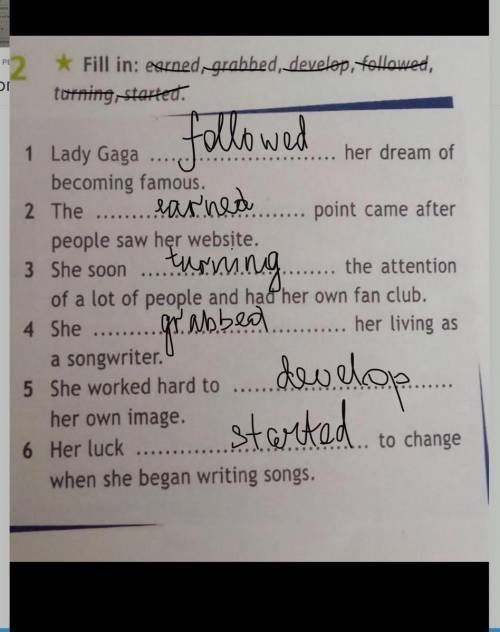 2 ★ Fill in: earned, grabbed, develop, followed,
turning, started.
1 Lady Gaga ... followed ... her dream of
becoming famous.
2 The ... earned ... point came after
people saw her website.
3 She soon ... turning ... the attention
of a lot of people and had her own fan club.
4 She ... grabbed ... her living as
a songwriter.
5 She worked hard to ... develop ...
her own image.
6 Her luck ... started ... to change
when she began writing songs.